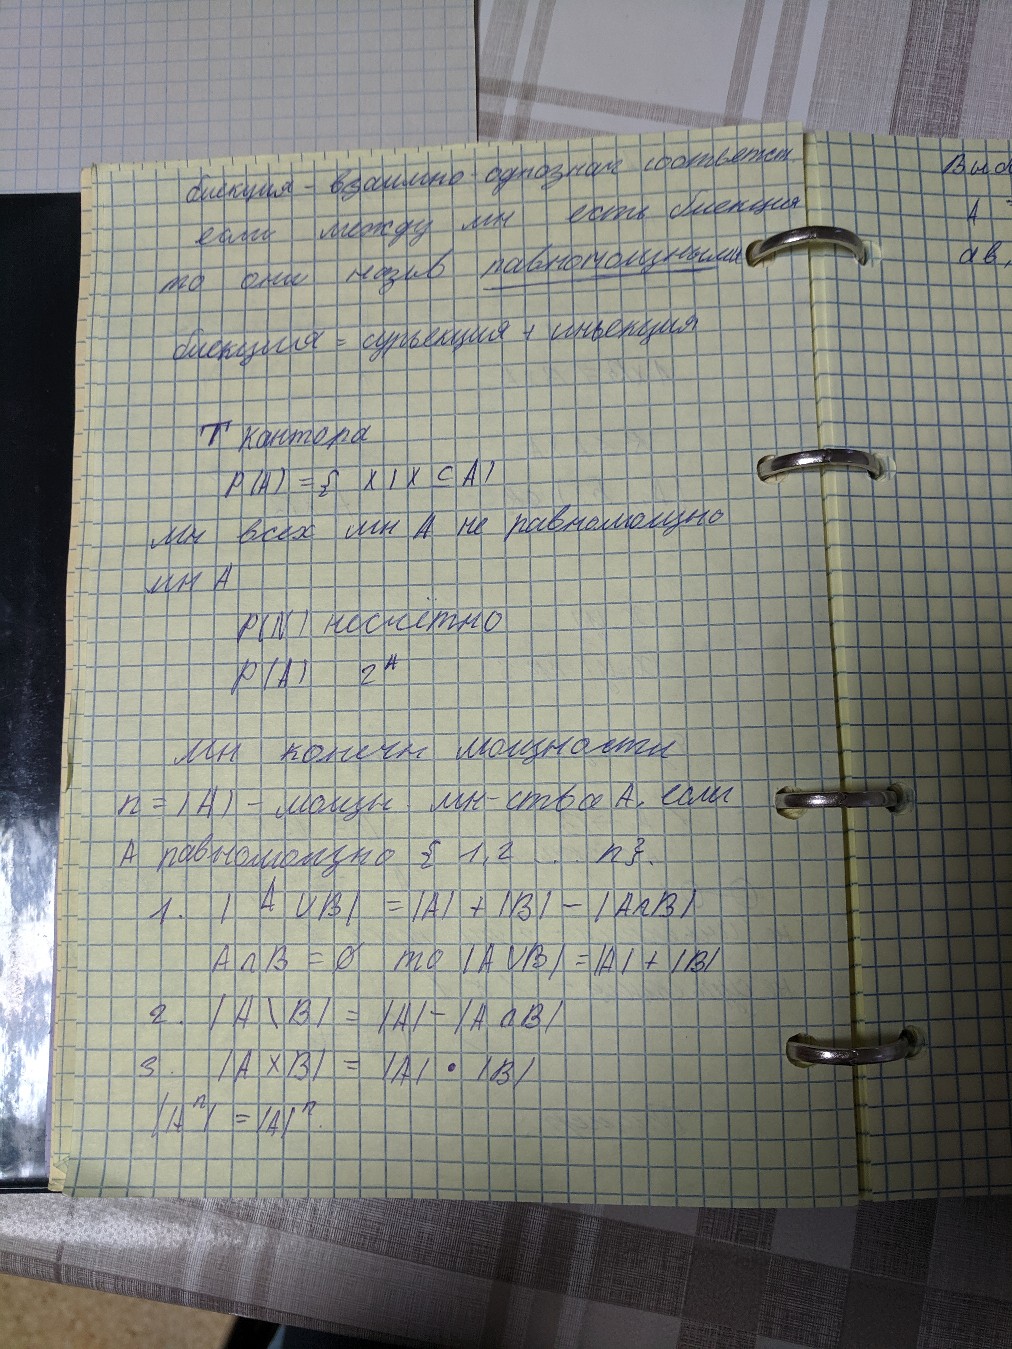 биекция - взаимно однознач соответст
если между мн есть биекция
то они назыв равномощными
биекция = сурьекция + иньекция
Т кантора
P(A) = { X | X ⊂ A }
Мн всех мн A не равномощно
мн A
P(N) несчётно
P(A) 2^A
Мн конечн мощности
n = |A| - мощн. мн-ства A. если
A равномощно { 1, 2 ... n }.
1. | A ∪ B | = |A| + |B| - |A ∩ B|
A ∩ B = ∅ то |A ∪ B| = |A| + |B|
2. |A \ B| = |A| - |A ∩ B|
3. |A × B| = |A| • |B|
|A^n| = |A|^n.
A
ав,